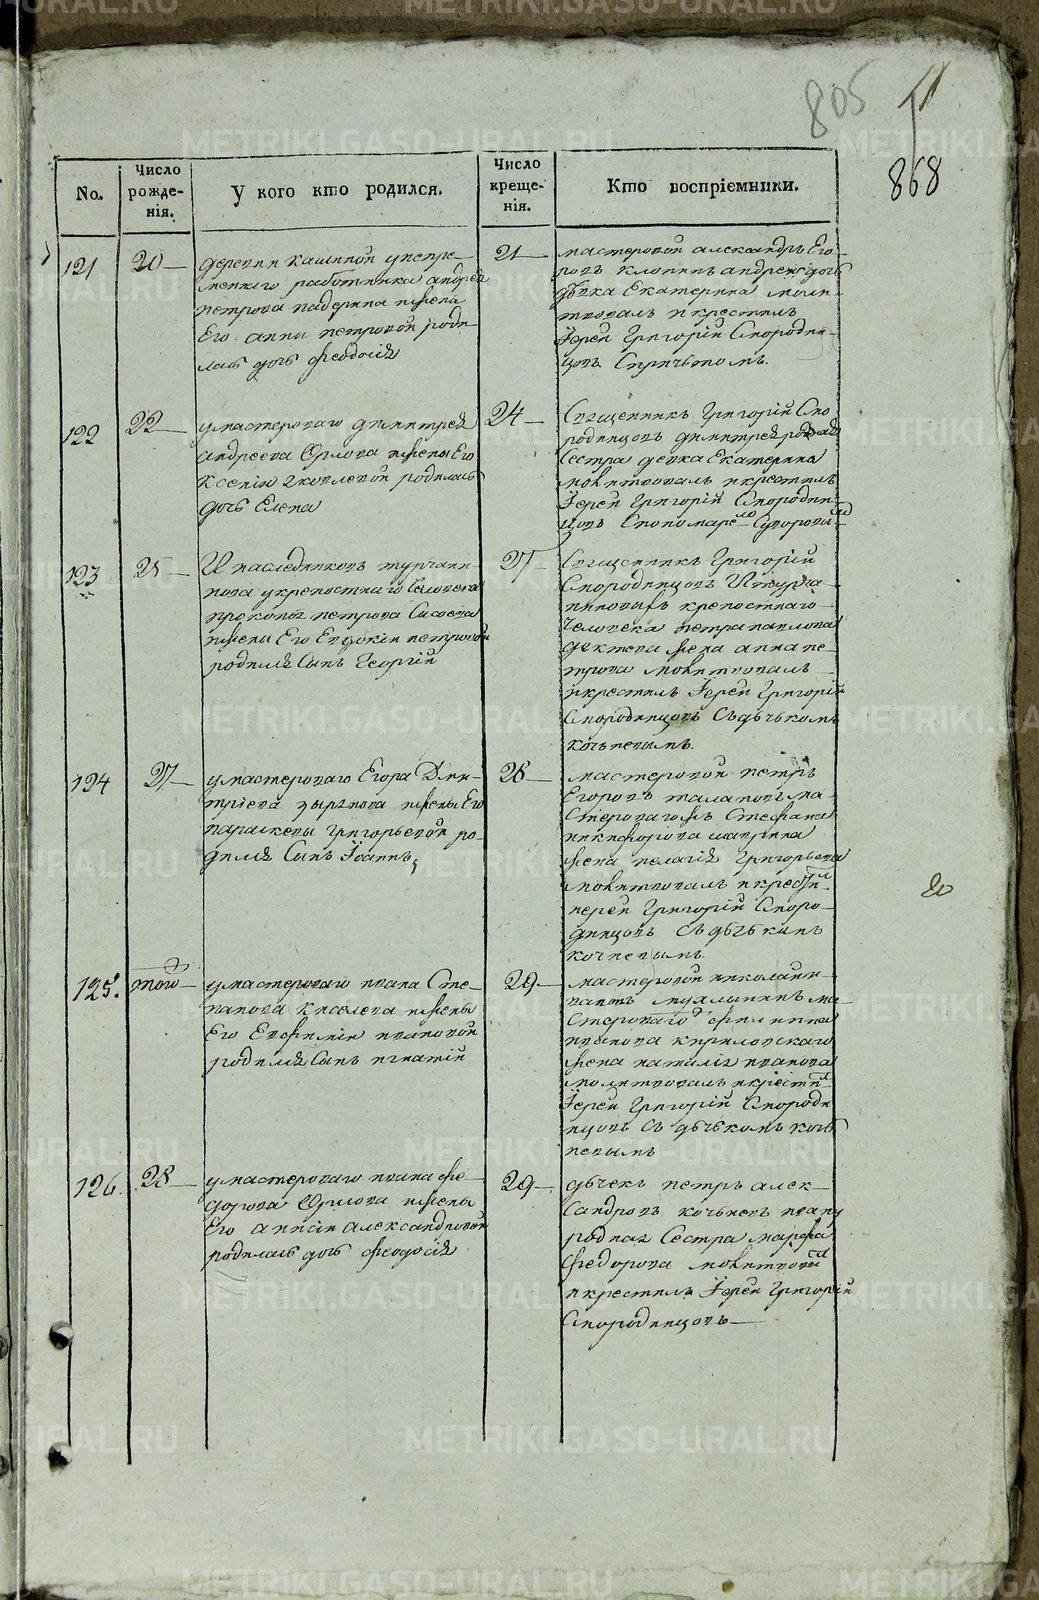 805
11
868
No.
Число рожде-нія.
У кого кто родился.
Число креще-нія.
Кто воспріемники.
121
20
деревни кашиной унепре-
меннаго работника андрея
петрова падерина ижена
Его анны петровой роди-
лась дочь феодосія
21
мастеровой александръ Его-
ровъ клопинъ андреева дочь
дѣвка Екатерина моли-
твовалъ икрестилъ
Іерей Григорій Смородин-
цовъ Спричьтомъ.
122
22
умастероваго димитрея
андреева Орлова ижены Его
Ксеніи яковлевой родилась
дочь Елена
24
Священникъ Григорій Смо
родинцовъ димитрея родная
Сестра девка Екатерина
молитвовалъ икрестилъ
Іерей Григорій Смородин
цовъ Спономаремъ
123
25
И наследниковъ турчани-
нова укрепостнаго Человека
прокопья петрова Сысоева
ижены Его Евдокіи петровой
родился Сынъ Георгій
27
Священникъ Григорій
Смородинцовъ Итурча-
ниновыхъ крепостнаго
Человека петра павлова
жена анна пе-
трова молитвовалъ
икрестилъ Іерей Григорій
Смородинцовъ Съдьчькомъ
кочьневымъ.
124
27
умастероваго Егора Дми-
тріева зырянова ижены Его
параскевы Григорьевой ро-
дился Сынъ Іоаннъ
28
мастеровой петръ
Егоровъ талаповъ ма-
стероваго Стефана
никифорова
жена пелагія Григорьева
молитвовалъ икрестил
иерей Григорій Сморо-
динцовъ Съдьчькомъ
кочневымъ.
125.
того
умастероваго ивана Сте-
панова Киселева ижены
Его Евфиміи ивановой
родился Сынъ игнатій
29
мастеровой николай и-
вановъ ма-
стероваго филиппа
иванова кириловскаго
жена наталія иванова
молитвовалъ икрестил
Іерей Григорій Смороди
нцовъ Съ дьчькомъ кочь
невымъ
126.
28
умастероваго ивана фе-
дорова Орлова ижены
Его анисіи александровой
родилась дочь феодосія
29
дьчекъ петръ алек-
сандровъ кочьневъ ивану
родная Сестра марфа
федорова молитвовал
икрестилъ Іерей Григорій
Смородинцовъ
METRIKI.GASO-URAL.RU